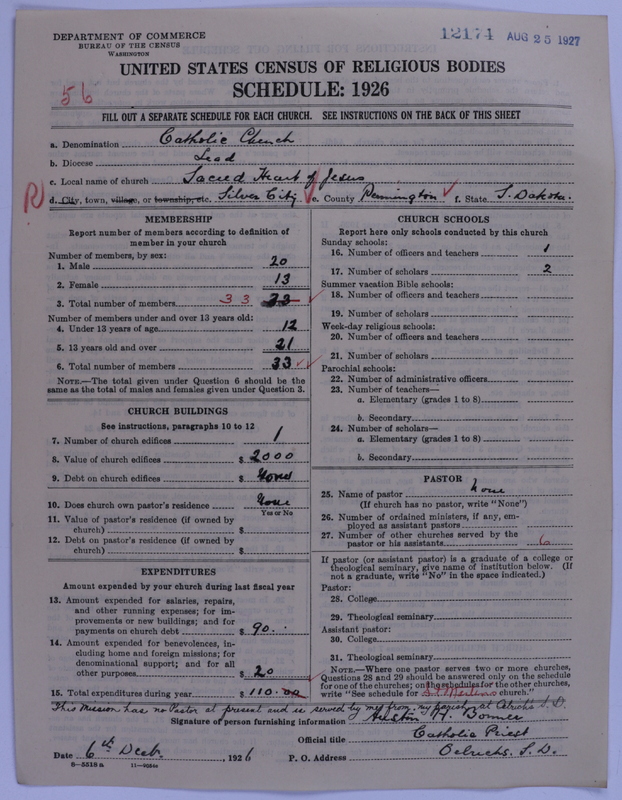 DEPARTMENT OF COMMERCE
BUREAU OF THE CENSUS
WASHINGTON
12174 AUG 25 1927
UNITED STATES CENSUS OF RELIGIOUS BODIES
SCHEDULE: 1926
56
FILL OUT A SEPARATE SCHEDULE FOR EACH CHURCH. SEE INSTRUCTIONS ON THE BACK OF THIS SHEET
a. Denomination Catholic Church
b. Diocese Lead
c. Local name of church Sacred Heart of Jesus
R
d. City, town, village, or township, etc. Silver City e. County Pennington f. State S. Dakota.
MEMBERSHIP
Report number of members according to definition of
member in your church
Number of members, by sex:
1. Male 20
2. Female 13
3. Total number of members 33 33
Number of members under and over 13 years old:
4. Under 13 years of age 12
5. 13 years old and over 21
6. Total number of members 33
NOTE.—The total given under Question 6 should be the
same as the total of males and females given under Question 3.
CHURCH BUILDINGS
See instructions, paragraphs 10 to 12
7. Number of church edifices 1
8. Value of church edifices $ 2000
9. Debt on church edifices $ None
10. Does church own pastor's residence None
Yes or No
11. Value of pastor's residence (if owned by
church) $
12. Debt on pastor's residence (if owned by
church) $
EXPENDITURES
Amount expended by your church during last fiscal year
13. Amount expended for salaries, repairs,
and other running expenses; for im-
provements or new buildings; and for
payments on church debt $ 90.
14. Amount expended for benevolences, in-
cluding home and foreign missions; for
denominational support; and for all
other purposes $ 20
15. Total expenditures during year $ 110.00
CHURCH SCHOOLS
Report here only schools conducted by this church
Sunday schools:
16. Number of officers and teachers 1
17. Number of scholars 2
Summer vacation Bible schools:
18. Number of officers and teachers
19. Number of scholars
Week-day religious schools:
20. Number of officers and teachers
21. Number of scholars
Parochial schools:
22. Number of administrative officers
23. Number of teachers—
a. Elementary (grades 1 to 8)
b. Secondary
24. Number of scholars—
a. Elementary (grades 1 to 8)
b. Secondary
PASTOR
25. Name of pastor None
(If church has no pastor, write "None")
26. Number of ordained ministers, if any, em-
ployed as assistant pastors
27. Number of other churches served by the
pastor or his assistants 6
If pastor (or assistant pastor) is a graduate of a college or
theological seminary, give name of institution below. (If
not a graduate, write "No" in the space indicated.)
Pastor:
28. College
29. Theological seminary
Assistant pastor:
30. College
31. Theological seminary
NOTE.—Where one pastor serves two or more churches,
Questions 28 and 29 should be answered only on the schedule
for one of the churches; on the schedules for the other churches,
write "See schedule for church."
This Mission has no Pastor at present and is served by me from my parish at Oelrichs S.D.
Signature of person furnishing information Austin H. Bonner
Official title Catholic Priest
Date 6th Dec., 1926 P. O. Address Oelrichs. S.D.
8—5318a 11—9054a